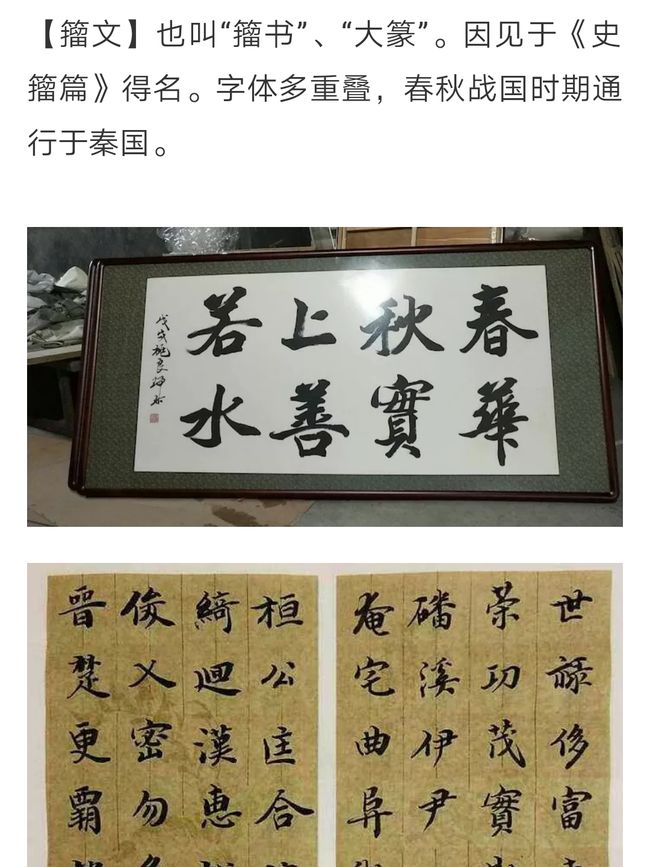 【籀文】也叫“籀书”、“大篆”。因见于《史
籀篇》得名。字体多重叠，春秋战国时期通
行于秦国。
春華
秋實
上善
若水
戊戌
世禄侈富
荣功茂實
磻溪伊尹
奄宅曲阜
桓公匡合
綺迴漢恵
俊乂密勿
晋楚更霸